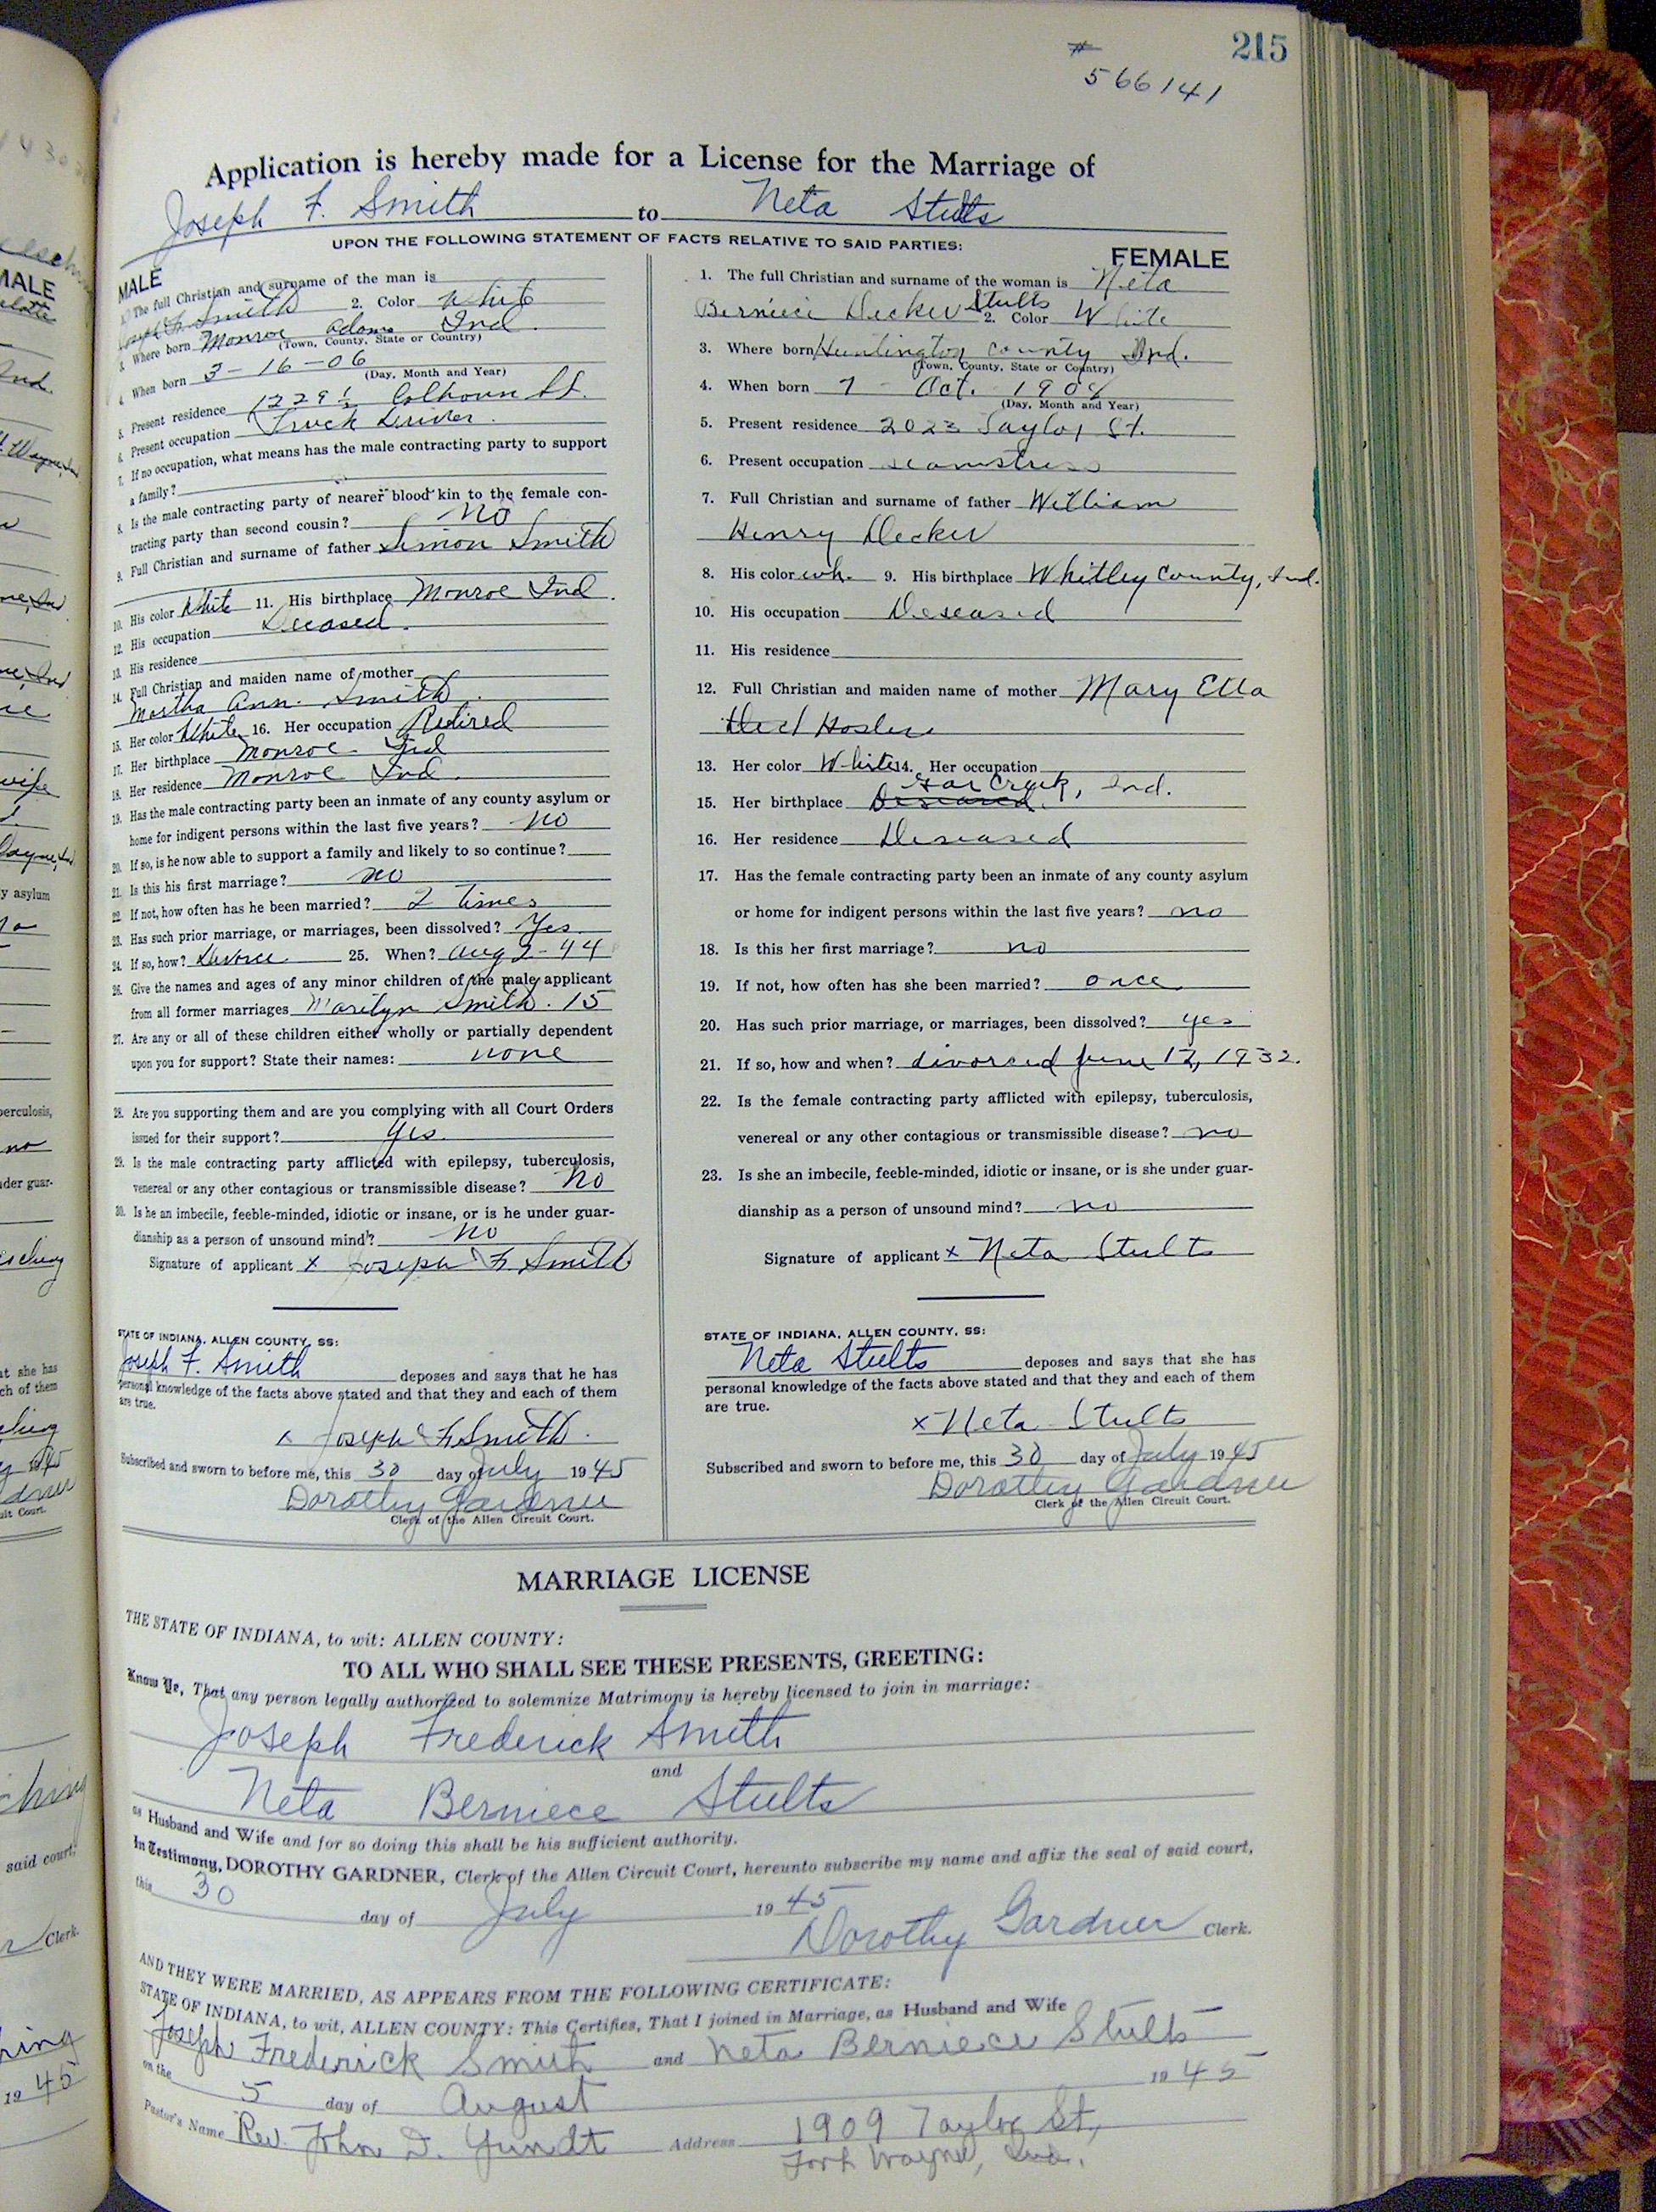 215
#
566141
Application is hereby made for a License for the Marriage of
Joseph F. Smith to Neta Stults
UPON THE FOLLOWING STATEMENT OF FACTS RELATIVE TO SAID PARTIES:
MALE
1. The full Christian and surname of the man is
Joseph F. Smith 2. Color White
3. Where born Monroe Adams Ind.
(Town, County, State or Country)
4. When born 3-16-06
(Day, Month and Year)
5. Present residence 1229½ Calhoun St.
6. Present occupation Truck Driver.
7. If no occupation, what means has the male contracting party to support
a family?
8. Is the male contracting party of nearer blood kin to the female con-
tracting party than second cousin? No
9. Full Christian and surname of father Simon Smith
10. His color White 11. His birthplace Monroe Ind.
12. His occupation Deceased.
13. His residence
14. Full Christian and maiden name of mother
Martha Ann. Smith.
15. Her color White 16. Her occupation Retired
17. Her birthplace Monroe Ind
18. Her residence Monroe Ind.
19. Has the male contracting party been an inmate of any county asylum or
home for indigent persons within the last five years? No
20. If so, is he now able to support a family and likely to so continue?
21. Is this his first marriage? no
22. If not, how often has he been married? 2 times
23. Has such prior marriage, or marriages, been dissolved? Yes.
24. If so, how? Divorce. 25. When? Aug 2-44
26. Give the names and ages of any minor children of the male applicant
from all former marriages Marilyn Smith. 15
27. Are any or all of these children either wholly or partially dependent
upon you for support? State their names: none
28. Are you supporting them and are you complying with all Court Orders
issued for their support? Yes.
29. Is the male contracting party afflicted with epilepsy, tuberculosis,
venereal or any other contagious or transmissible disease? No
30. Is he an imbecile, feeble-minded, idiotic or insane, or is he under guar-
dianship as a person of unsound mind? No
Signature of applicant x Joseph F. Smith
STATE OF INDIANA, ALLEN COUNTY, SS:
Joseph F. Smith deposes and says that he has
personal knowledge of the facts above stated and that they and each of them
are true.
x Joseph F. Smith.
Subscribed and sworn to before me, this 30 day of July 1945
Dorothy Gardner
Clerk of the Allen Circuit Court.
FEMALE
1. The full Christian and surname of the woman is Neta
Berniece Decker Stults 2. Color White
3. Where born Huntington County Ind.
(Town, County, State or Country)
4. When born 7 - Oct. 1908
(Day, Month and Year)
5. Present residence 2023 Taylor St.
6. Present occupation seamstress
7. Full Christian and surname of father William
Henry Decker
8. His color wh. 9. His birthplace Whitley County, Ind.
10. His occupation Deseased
11. His residence
12. Full Christian and maiden name of mother Mary Ella
Hosler
13. Her color White 14. Her occupation
15. Her birthplace Deseased. Creek, Ind.
16. Her residence Deseased
17. Has the female contracting party been an inmate of any county asylum
or home for indigent persons within the last five years? no
18. Is this her first marriage? no
19. If not, how often has she been married? once
20. Has such prior marriage, or marriages, been dissolved? yes
21. If so, how and when? divorced June 12, 1932.
22. Is the female contracting party afflicted with epilepsy, tuberculosis,
venereal or any other contagious or transmissible disease? no
23. Is she an imbecile, feeble-minded, idiotic or insane, or is she under guar-
dianship as a person of unsound mind? no
Signature of applicant x Neta Stults
STATE OF INDIANA, ALLEN COUNTY, SS:
Neta Stults deposes and says that she has
personal knowledge of the facts above stated and that they and each of them
are true.
x Neta Stults
Subscribed and sworn to before me, this 30 day of July 1945
Dorothy Gardner
Clerk of the Allen Circuit Court.
MARRIAGE LICENSE
THE STATE OF INDIANA, to wit: ALLEN COUNTY:
TO ALL WHO SHALL SEE THESE PRESENTS, GREETING:
Know Ye, That any person legally authorized to solemnize Matrimony is hereby licensed to join in marriage:
Joseph Frederick Smith
and
Neta Berniece Stults
as Husband and Wife and for so doing this shall be his sufficient authority.
In Testimony, DOROTHY GARDNER, Clerk of the Allen Circuit Court, hereunto subscribe my name and affix the seal of said court,
this 30 day of July 1945
Dorothy Gardner Clerk.
AND THEY WERE MARRIED, AS APPEARS FROM THE FOLLOWING CERTIFICATE:
STATE OF INDIANA, to wit, ALLEN COUNTY: This Certifies, That I joined in Marriage, as Husband and Wife
Joseph Frederick Smith and Neta Berniece Stults
on the 5 day of August 1945
Pastor's Name Rev. John D. Yundt Address 1909 Taylor St,
Fort Wayne, Ind.